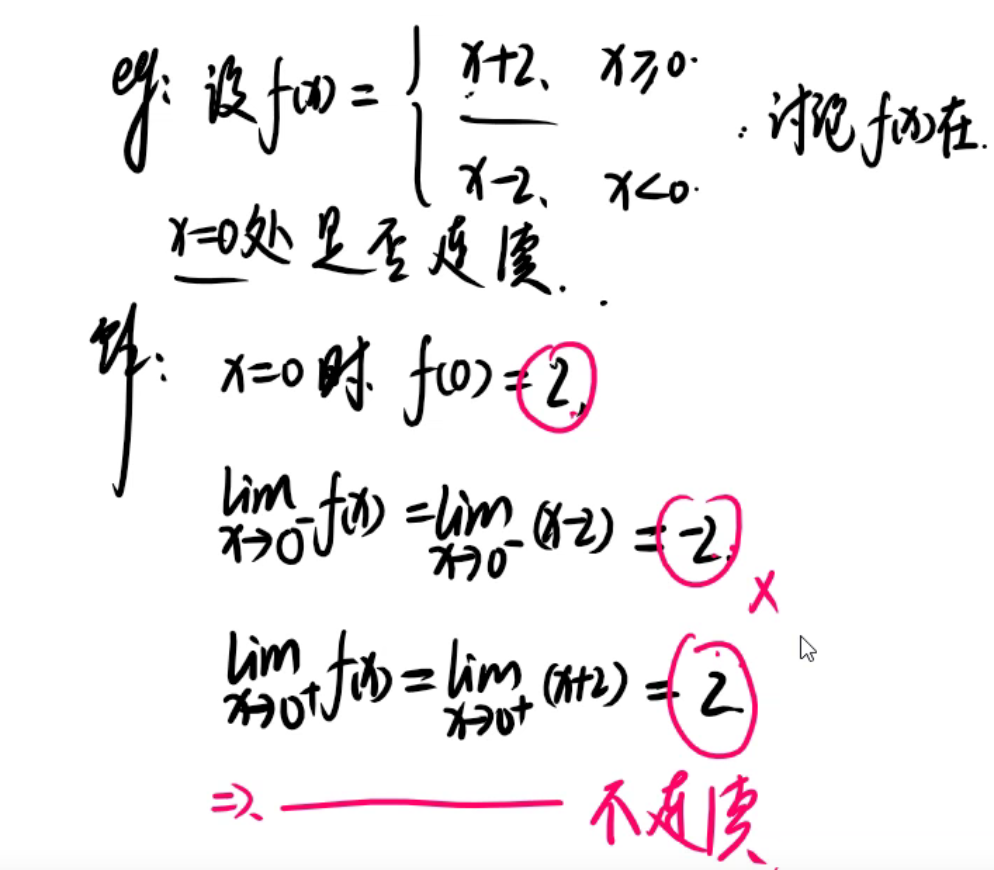 eg: 设 f(x) = { x+2、 x≥0. 讨论 f(x) 在.
x-2、 x<0.
x=0处 是否连续.
解: x=0时. f(0)=2,
lim x→0⁻ f(x) = lim x→0⁻ (x-2) = -2. ×
lim x→0⁺ f(x) = lim x→0⁺ (x+2) = 2
⇒、 —— 不连续、